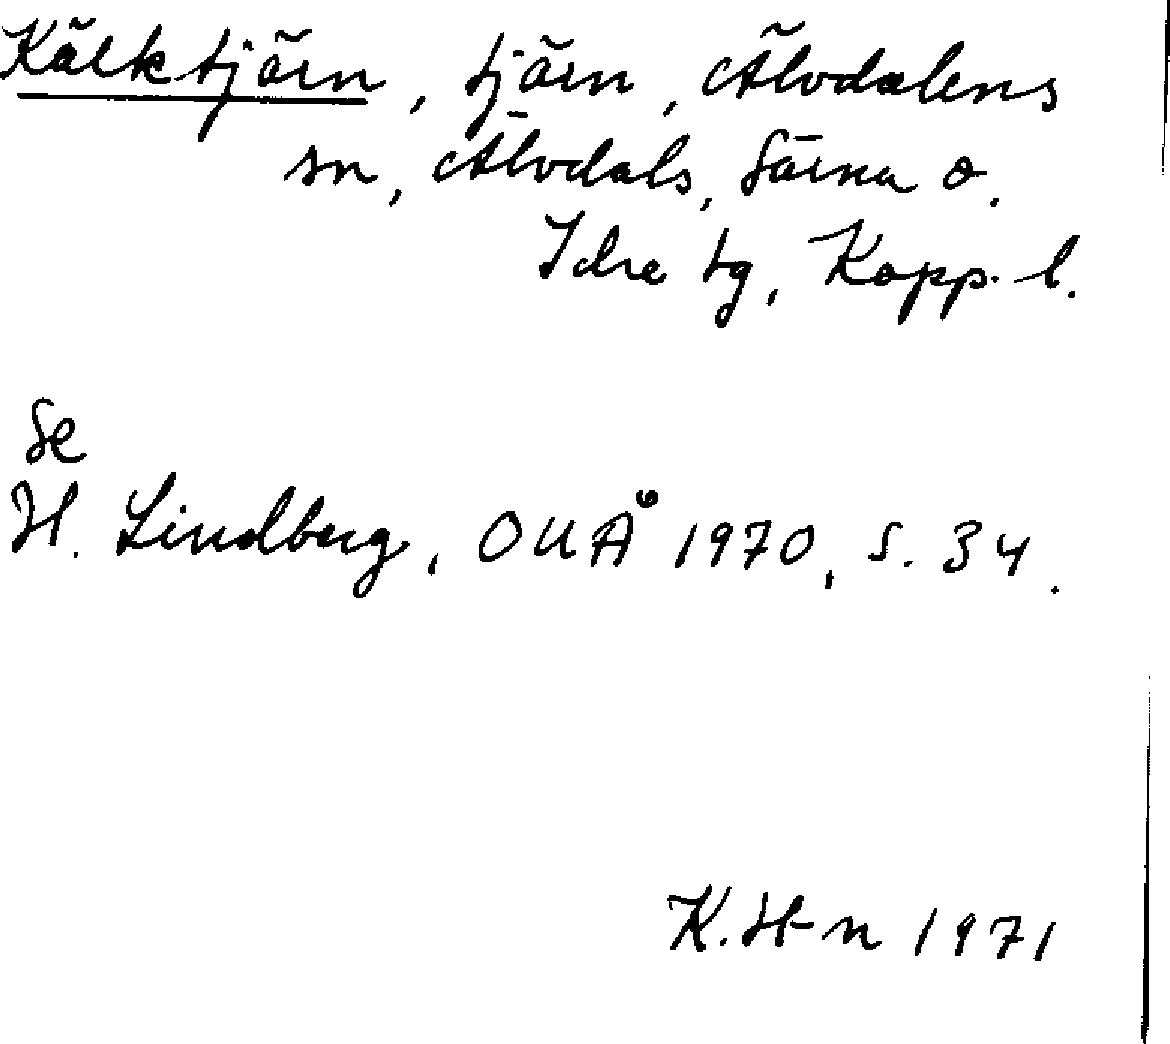 Kälktjärn, tjärn, Älvdalens
sn, Älvdals, Särna o.
Idre tg, Kopp. l.
Se
H. Lindberg, OUÅ 1970, s. 34.
K. H-n 1971